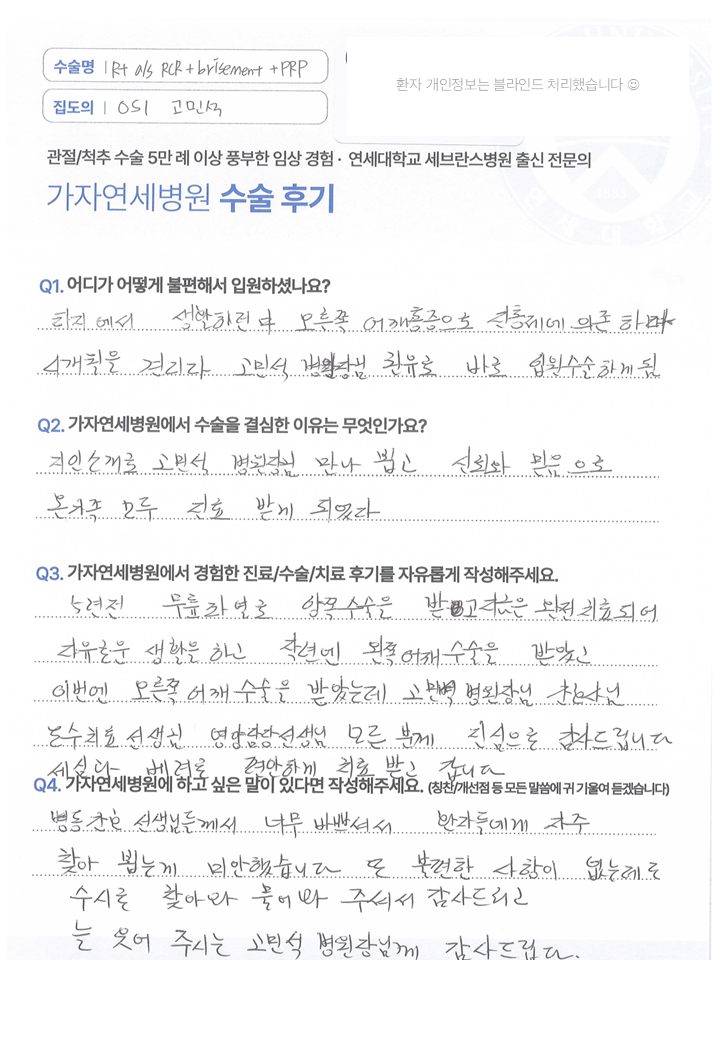 수술명 | Rt a/s RCR + brisement + PRP
환자 개인정보는 블라인드 처리했습니다 ☺
집도의 | OS1 고민석
관절/척추 수술 5만 례 이상 풍부한 임상 경험 · 연세대학교 세브란스병원 출신 전문의
가자연세병원 수술 후기
Q1. 어디가 어떻게 불편해서 입원하셨나요?
타지에서 생활하던中 오른쪽 어깨통증으로 진통제에 의존하며
4개월을 견디다 고민석 병원장님 권유로 바로 입원수술하게됨
Q2. 가자연세병원에서 수술을 결심한 이유는 무엇인가요?
지인소개로 고민석 병원장님 만나 뵙고 신뢰와 믿음으로
온가족 모두 진료 받게 되었다
Q3. 가자연세병원에서 경험한 진료/수술/치료 후기를 자유롭게 작성해주세요.
5년전 무릎파열로 양쪽수술을 받고 지금은 완전치료되어
자유로운 생활을 하고 작년엔 왼쪽어깨수술을 받았고
이번엔 오른쪽어깨수술을 받았는데 고민석 병원장님 간호사님
도수치료 선생님 영양담당선생님 모든 분께 진심으로 감사드립니다
세심한 배려로 편안하게 치료 받고 갑니다
Q4. 가자연세병원에 하고 싶은 말이 있다면 작성해주세요. (칭찬/개선점 등 모든 말씀에 귀 기울여 듣겠습니다)
병동 간호 선생님들께서 너무 바쁘셔서 환자들에게 자주
찾아 뵙는게 미안했습니다 또 불편한 사항이 없는데도
수시로 찾아와 물어봐 주셔서 감사드리고
늘 웃어 주시는 고민석 병원장님께 감사드립다.